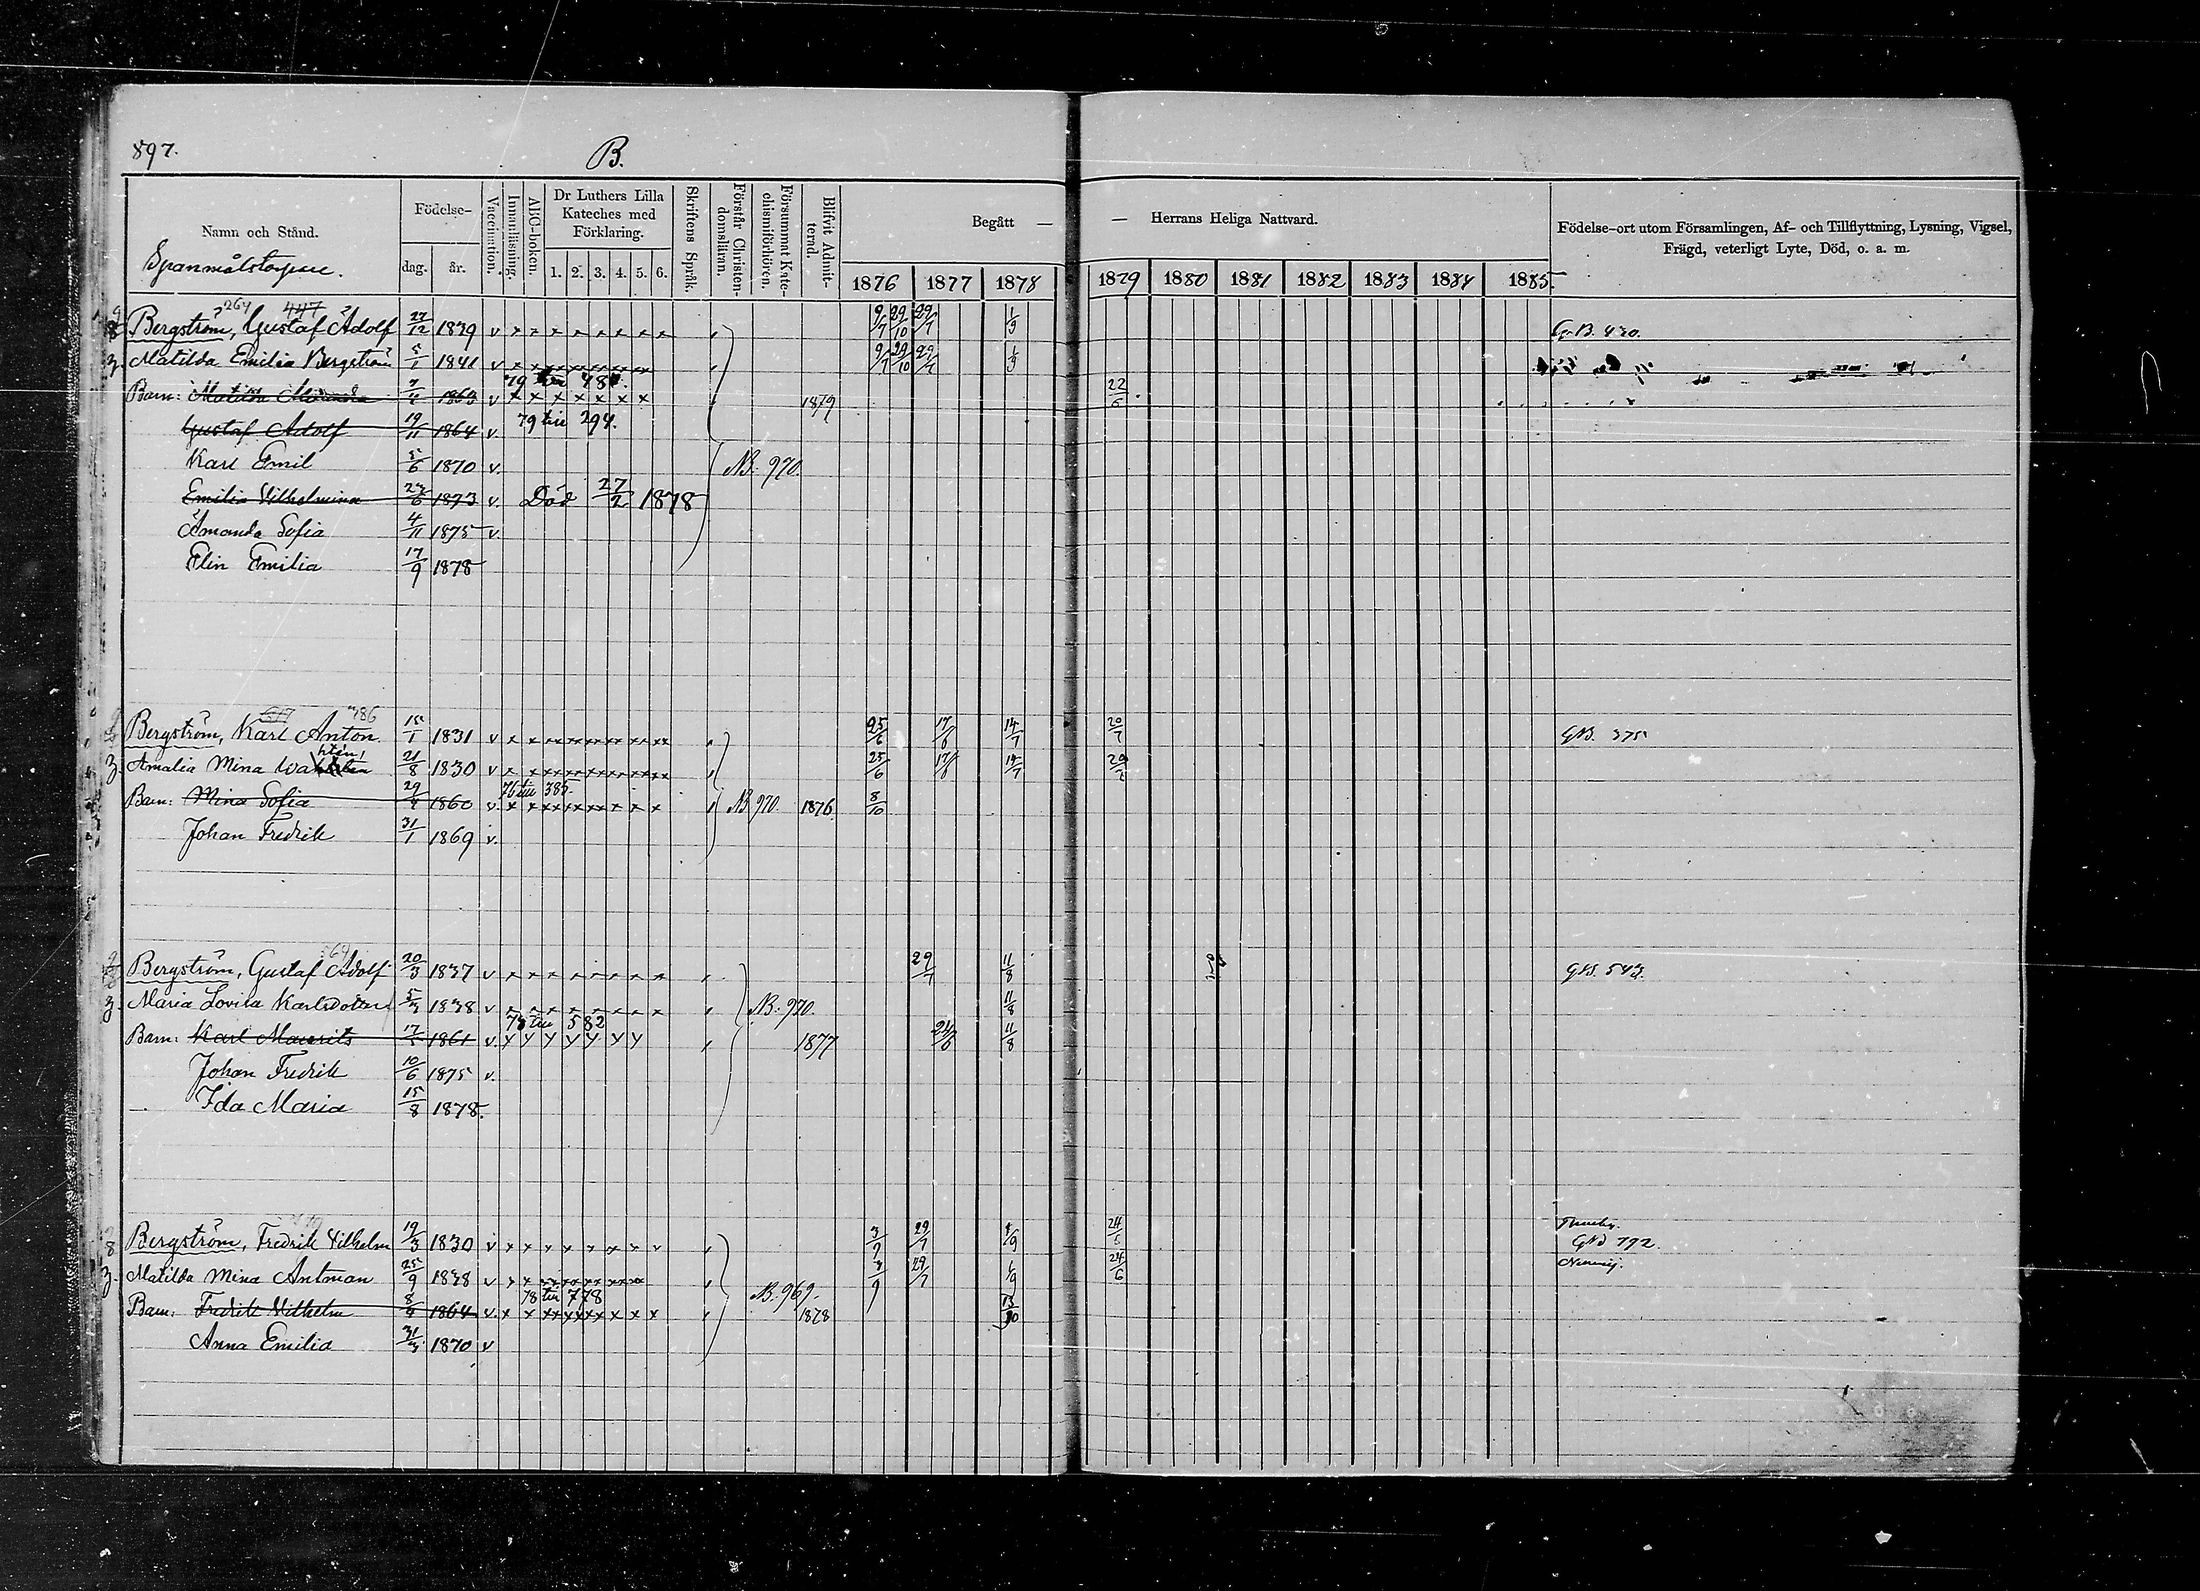 897.
B.
Namn och Stånd.
Födelse-
dag.
år.
Vaccination.
Innanläsning.
ABC-boken.
Dr Luthers Lilla Kateches med Förklaring.
1. 2. 3. 4. 5. 6.
Skriftens Språk.
Förstår Christendomsläran.
Försummat Katechismiförhören.
Blifvit Admitterad.
Begått —
— Herrans Heliga Nattvard.
1876 1877 1878 1879 1880 1881 1882 1883 1884 1885.
Födelse-ort utom Församlingen, Af- och Tillflyttning, Lysning, Vigsel,
Frägd, veterligt Lyte, Död, o. a. m.
264 447
Bergström, Gustaf Adolf 27/12 1839 v 9/7 29/10 29/7 1/9
Matilda Emilia Bergström 5/1 1841 v 9/7 29/10 29/7 1/9
Barn: Matilda 1863 v 1879 22/6
Gustaf Adolf 19/11 1864 v. 79 till 294.
Karl Emil 5/6 1870 v. NB. 970.
Emilia Vilhelmina 27/6 1873 v. Död 27/2 1878
Amanda Sofia 4/11 1875 v.
Elin Emilia 17/9 1878
Bergström, Karl Anton 15/1 1831 v 25/6 17/6 14/7 20/7 GB. 375
Amalia Mina 21/8 1830 v 25/6 17/6 14/7
76 till 385.
Barn: Mina Sofia 1860 v. NB 970. 1876 8/10
Johan Fredrik 31/1 1869 v.
Bergström, Gustaf Adolf 20/3 1837 v 29/7 11/8
Maria Lovisa Karlsdotter 1838 v NB. 970. 11/8
78 till 582
Barn: Karl Maurits 1861 v. 1877 11/8
Johan Fredrik 10/6 1875 v.
Ida Maria 15/8 1878.
Bergström, Fredrik Vilhelm 19/3 1830 v 3/9 29/7 1/9 24/6 792.
Matilda Mina Antman 25/9 1838 v 3/9 29/7 1/9 24/6
78 till 778
Barn: Fredrik Vilhelm 1864 v. NB. 969. 1878 13/10
Anna Emilia 1870 v